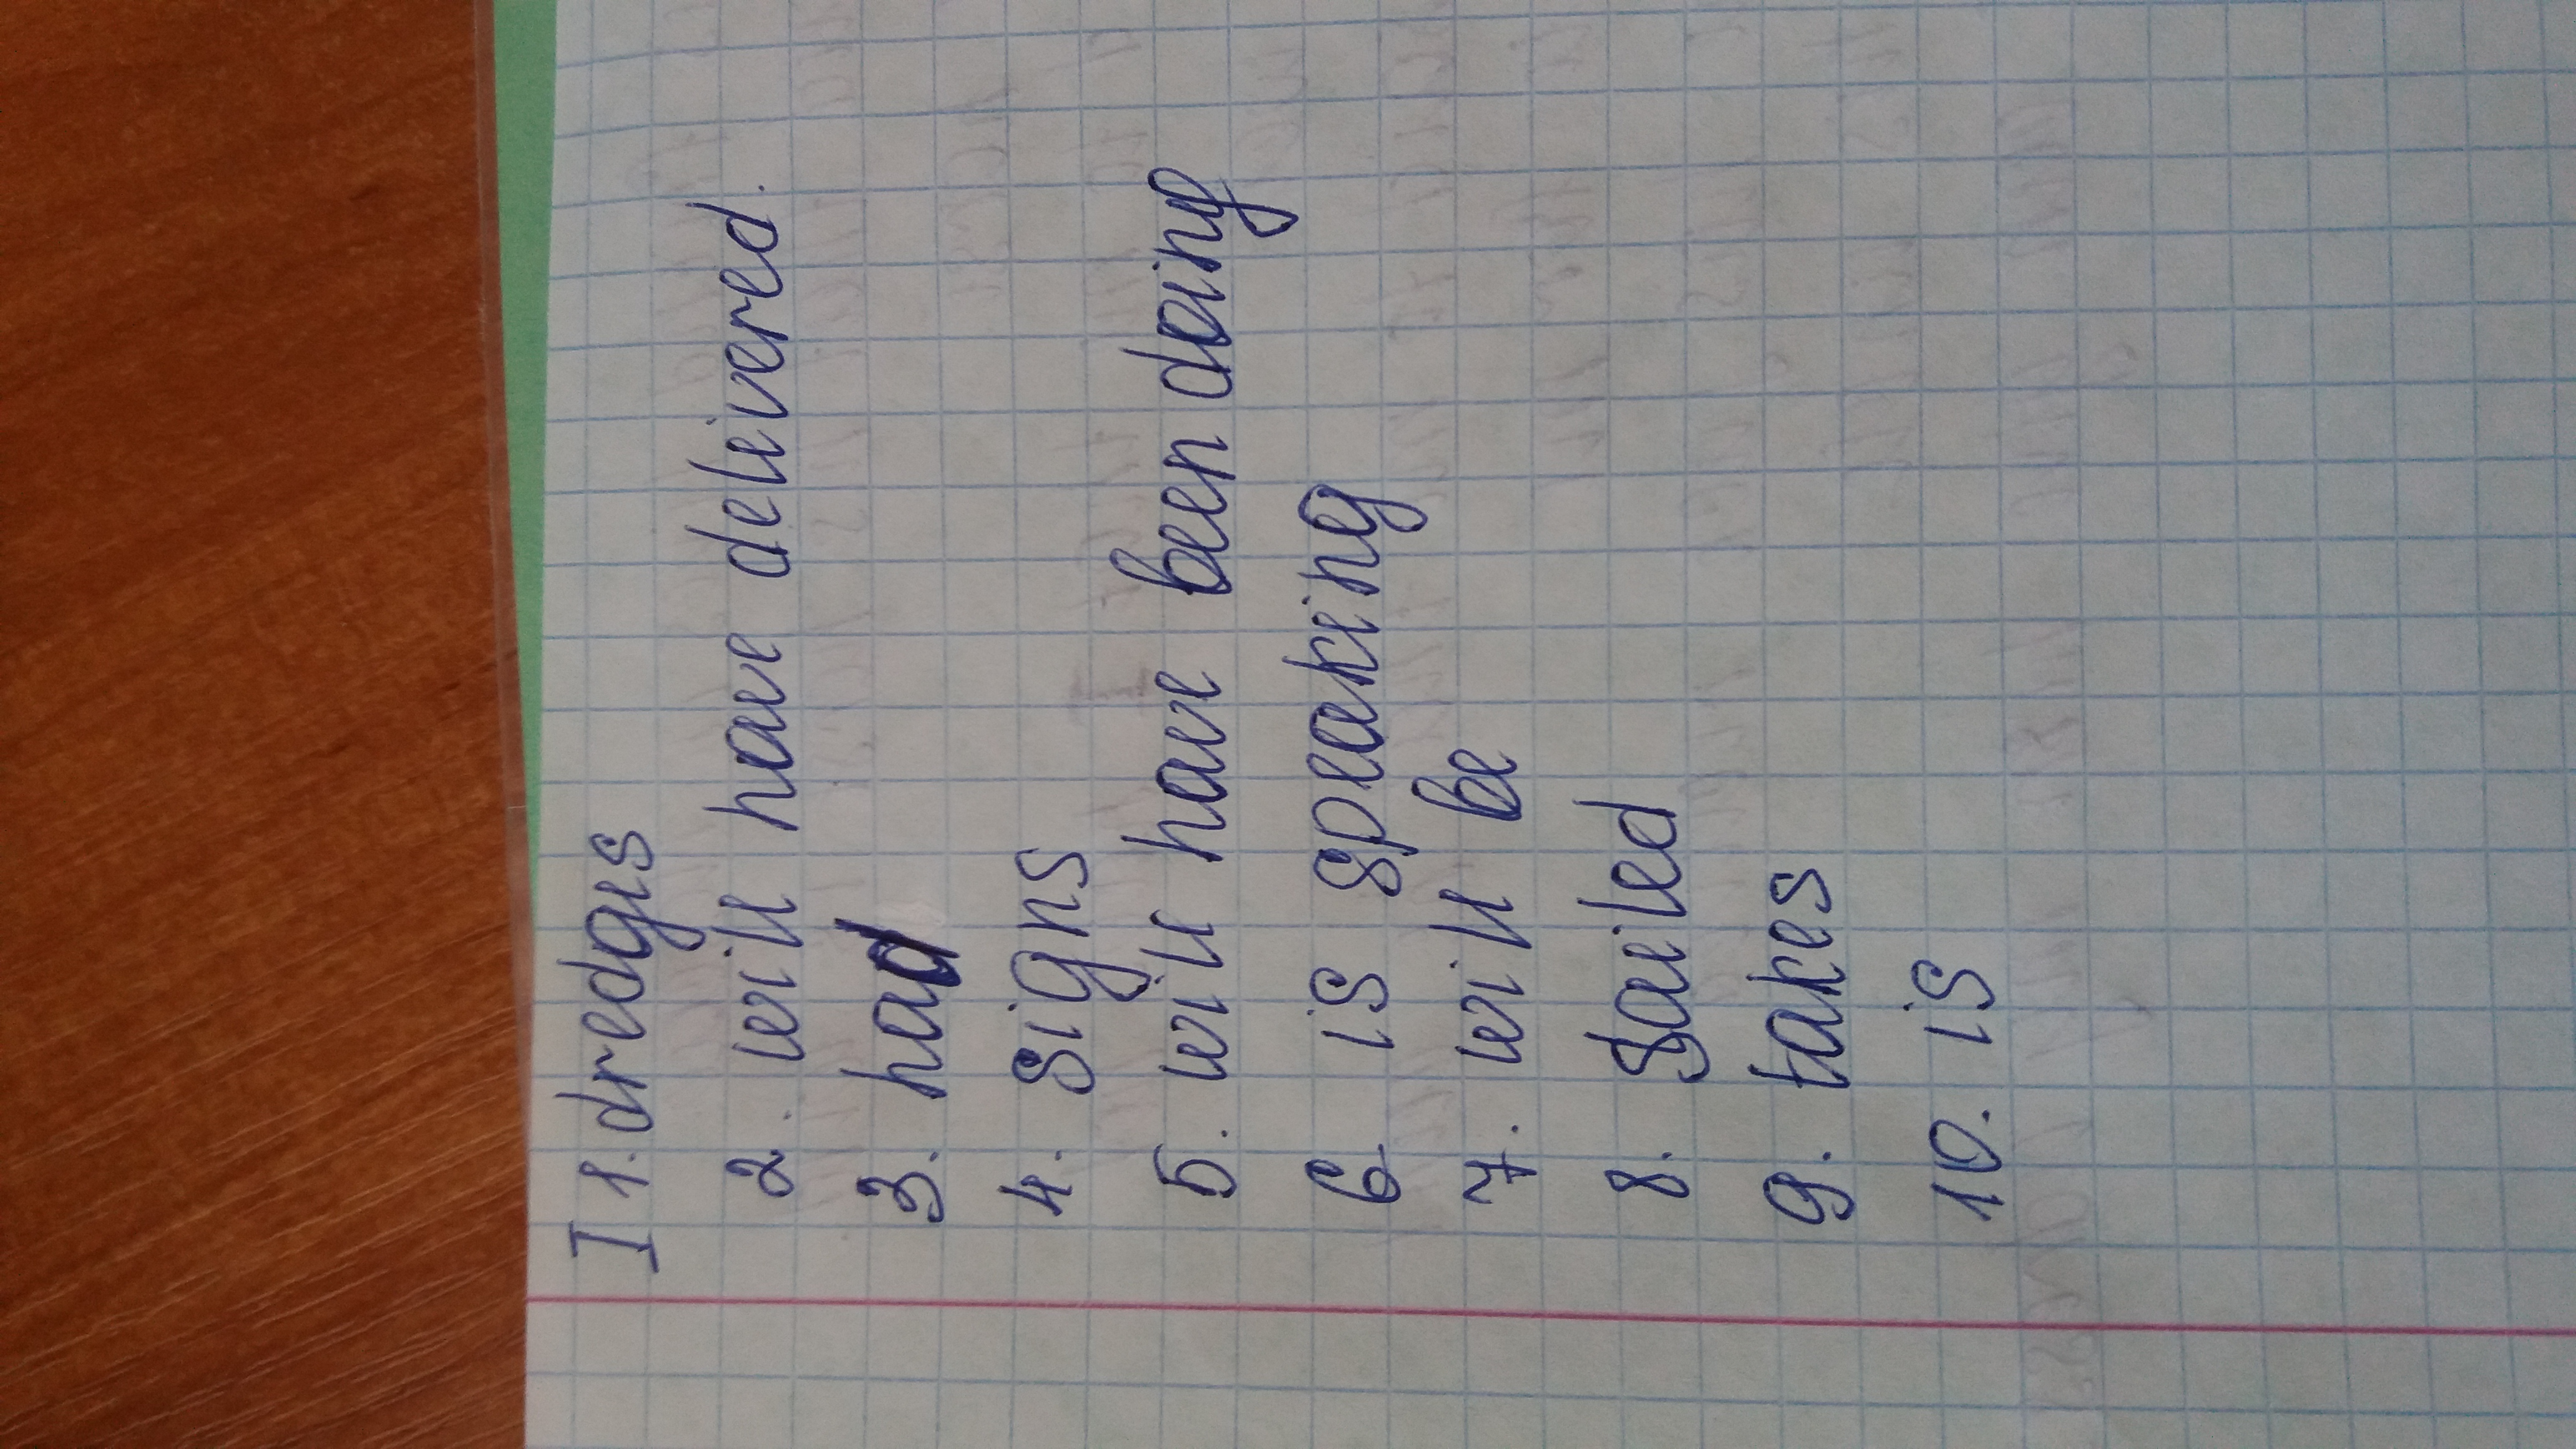 I 1. dredgis
2. will have delivered.
3. had
4. signs
5. will have been doing
6 is speaking
7. will be
8. Sailed
9. takes
10. is